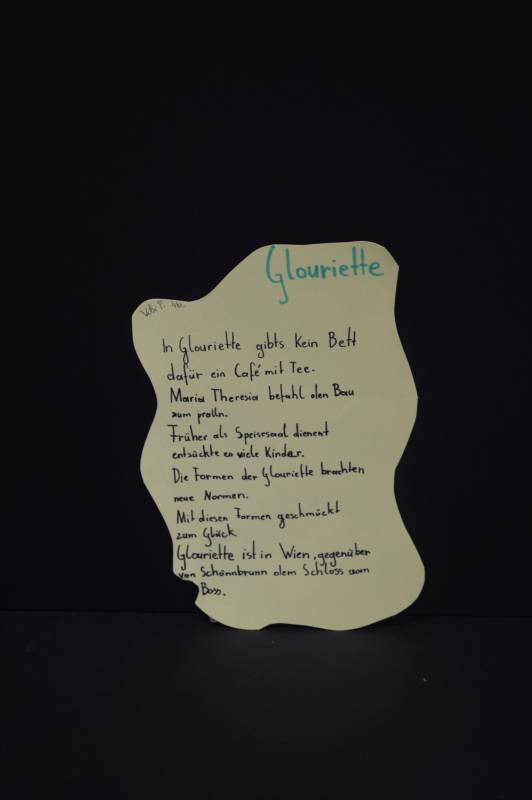 Glouriette
In Glouriette gibts Kein Bett
dafür ein Café mit Tee.
Maria Theresia befahl den Bau
zum pralln.
Früher als Speisesaal dienent
entzückte es viele Kinder.
Die Formen der Glouriette brachten
neue Normen.
Mit diesen Formen geschmückt
zum Glück
Glouriette ist in Wien, gegenüber
von Schönnbrunn dem Schloss vom
Boss.